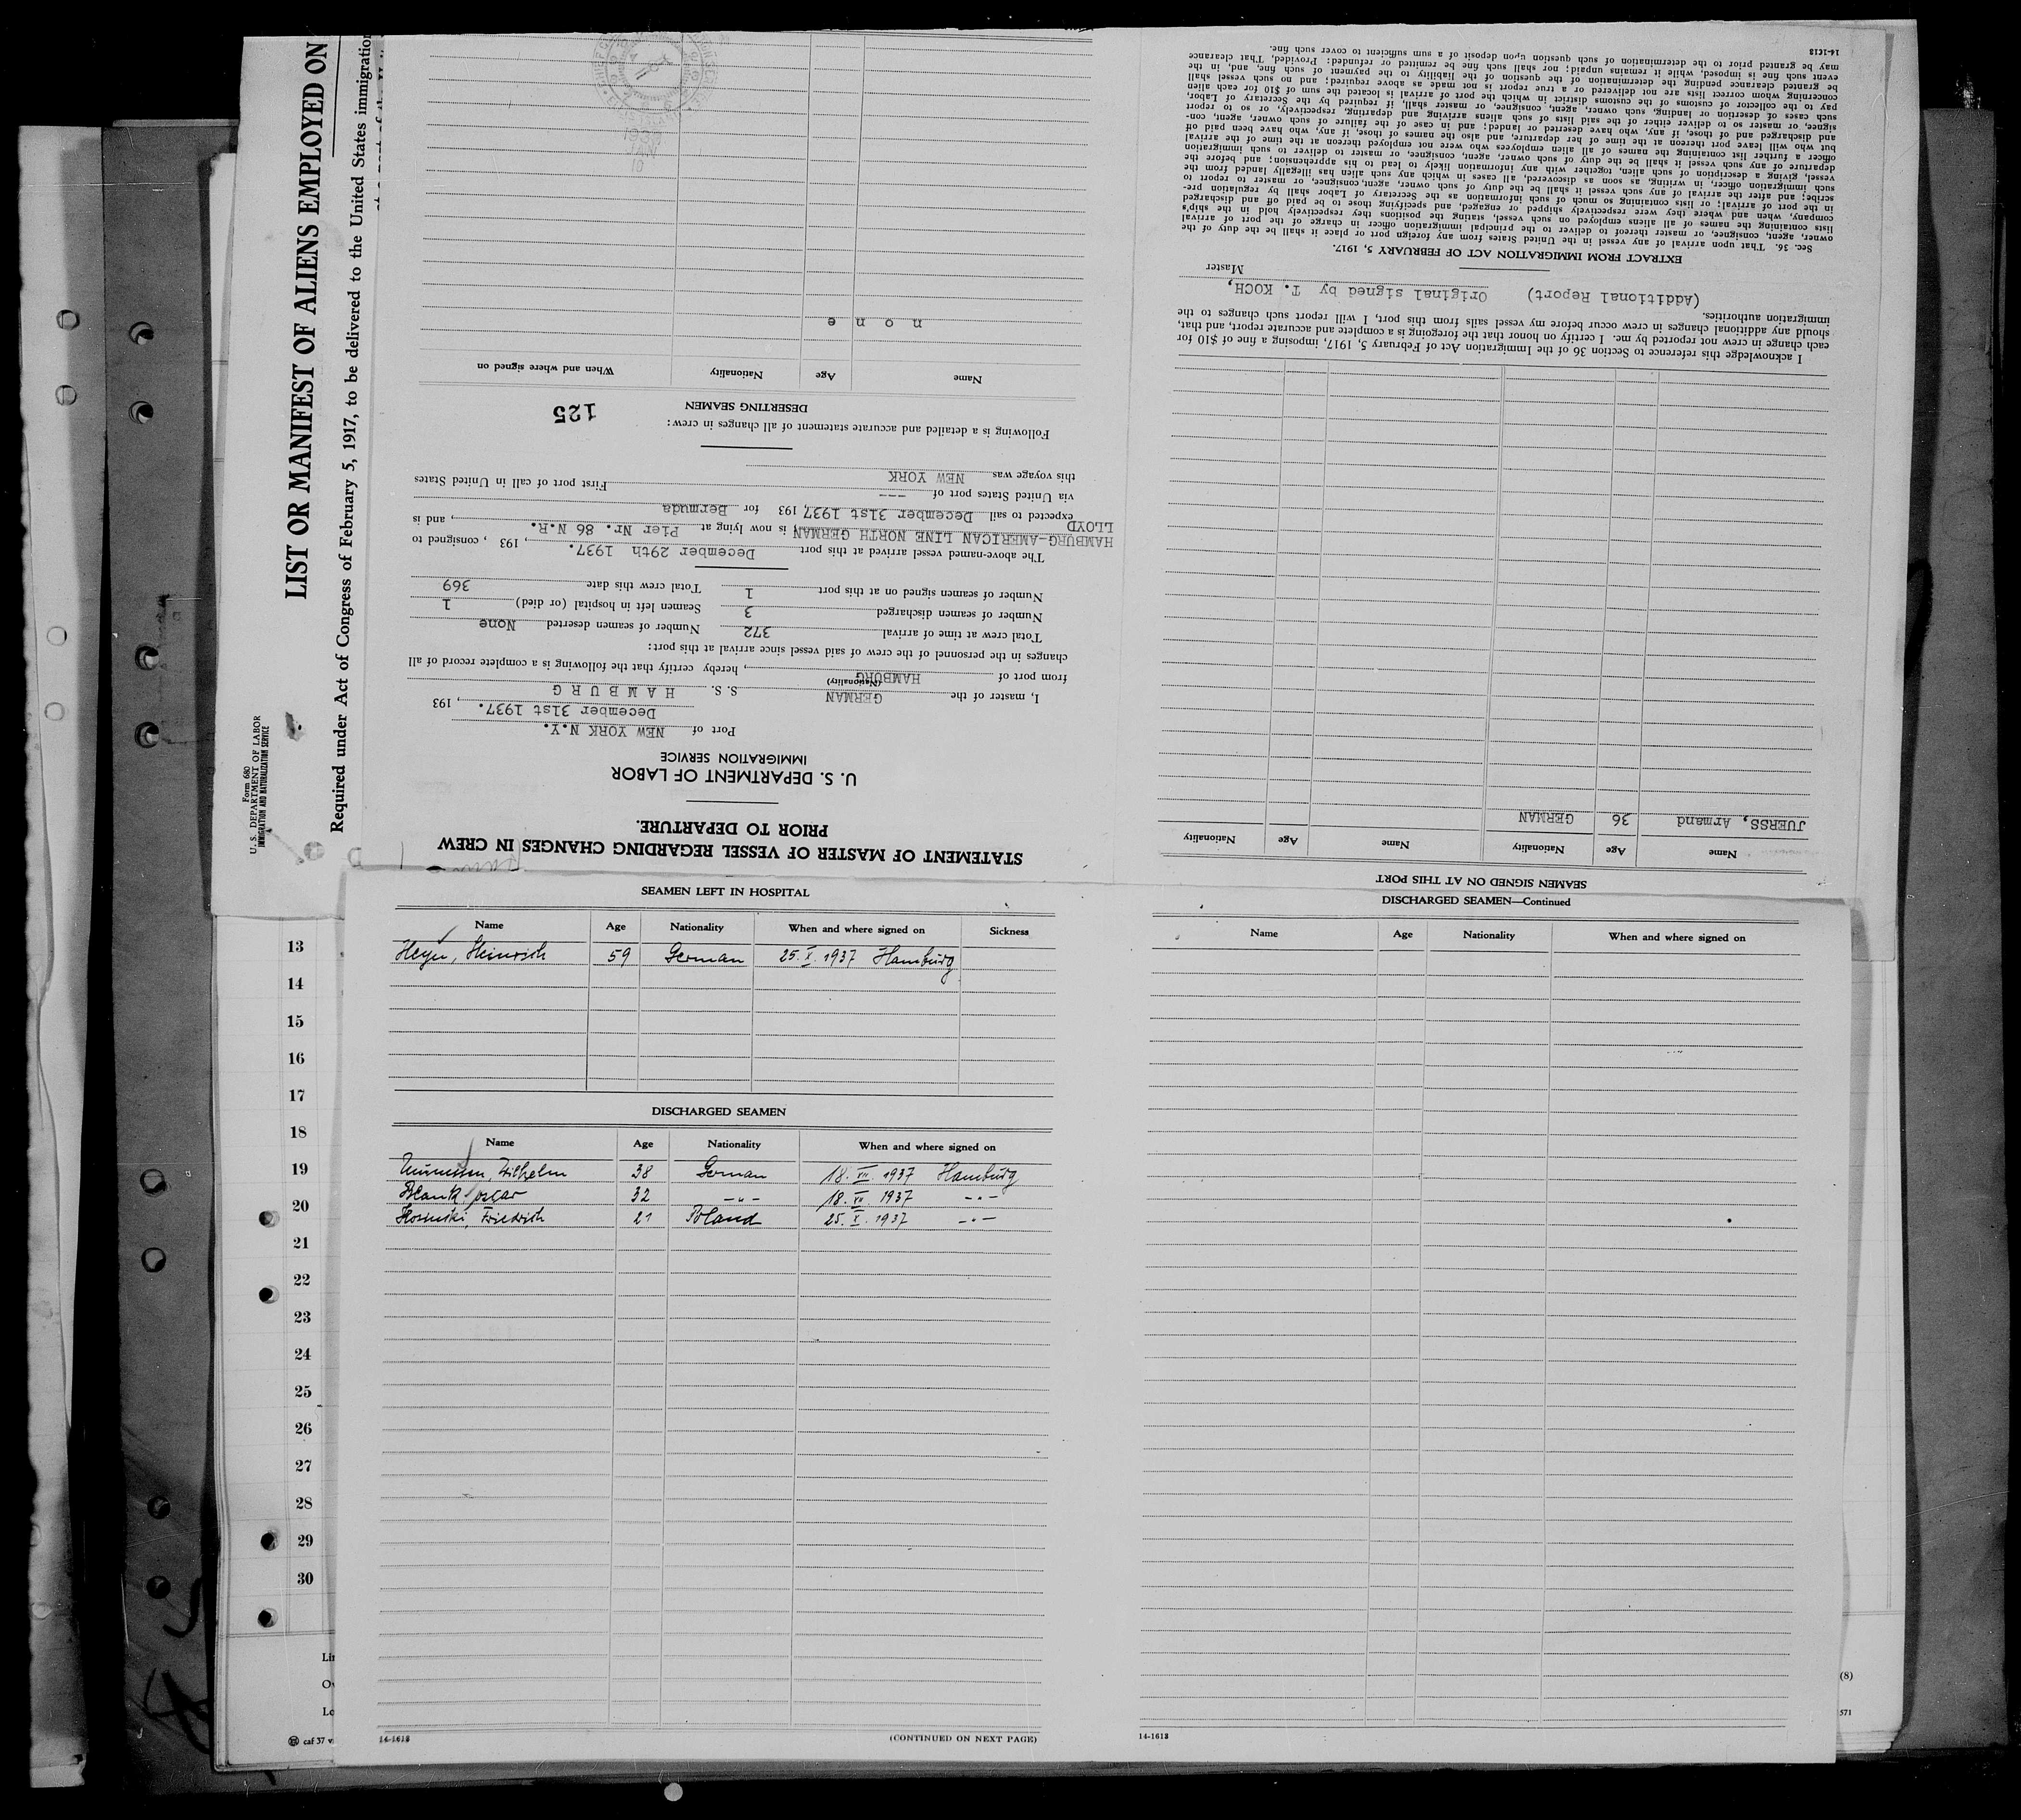 Form 680
U. S. DEPARTMENT OF LABOR
IMMIGRATION AND NATURALIZATION SERVICE
LIST OR MANIFEST OF ALIENS EMPLOYED ON
Required under Act of Congress of February 5, 1917, to be delivered to the United States immigration
STATEMENT OF MASTER OF VESSEL REGARDING CHANGES IN CREW
PRIOR TO DEPARTURE.
U. S. DEPARTMENT OF LABOR
IMMIGRATION SERVICE
Port of NEW YORK N.Y.
December 31st 1937. , 193
I, master of the GERMAN S. S. HAMBURG
(Nationality)
from port of HAMBURG , hereby certify that the following is a complete record of all
changes in the personnel of the crew of said vessel since arrival at this port:
Total crew at time of arrival 372 Number of seamen deserted None
Number of seamen discharged 3 Seamen left in hospital (or died) 1
Number of seamen signed on at this port 1 Total crew this date 369
The above-named vessel arrived at this port December 29th 1937. , 193 , consigned to
HAMBURG-AMERICAN LINE NORTH GERMAN ; is now lying at Pier Nr. 86 N.R. , and is
LLOYD
expected to sail December 31st 1937 193 for Bermuda
via United States port of --- First port of call in United States
this voyage was NEW YORK
Following is a detailed and accurate statement of all changes in crew:
DESERTING SEAMEN 125
Name Age Nationality When and where signed on
n o n e
SEAMEN SIGNED ON AT THIS PORT
Name Age Nationality Name Age Nationality
JUERSS, Armand 36 GERMAN
I acknowledge this reference to Section 36 of the Immigration Act of February 5, 1917, imposing a fine of $10 for
each change in crew not reported by me. I certify on honor that the foregoing is a complete and accurate report, and that,
should any additional changes in crew occur before my vessel sails from this port, I will report such changes to the
immigration authorities.
(Additional Report) Original signed by T. KOCH,
Master
EXTRACT FROM IMMIGRATION ACT OF FEBRUARY 5, 1917.
Sec. 36. That upon arrival of any vessel in the United States from any foreign port or place it shall be the duty of the
owner, agent, consignee, or master thereof to deliver to the principal immigration officer in charge of the port of arrival
lists containing the names of all aliens employed on such vessel, stating the positions they respectively hold in the ship's
company, when and where they were respectively shipped or engaged, and specifying those to be paid off and discharged
in the port of arrival; or lists containing so much of such information as the Secretary of Labor shall by regulation pre-
scribe; and after the arrival of any such vessel it shall be the duty of such owner, agent, consignee, or master to report to
such immigration officer, in writing, as soon as discovered, all cases in which any such alien has illegally landed from the
vessel, giving a description of such alien, together with any information likely to lead to his apprehension; and before the
departure of any such vessel it shall be the duty of such owner, agent, consignee, or master to deliver to such immigration
officer a further list containing the names of all alien employees who were not employed thereon at the time of the arrival
but who will leave port thereon at the time of her departure, and also the names of those, if any, who have been paid off
and discharged and of those, if any, who have deserted or landed; and in case of the failure of such owner, agent, con-
signee, or master so to deliver either of the said lists of such aliens arriving and departing, respectively, or so to report
such cases of desertion or landing, such owner, agent, consignee, or master, shall, if required by the Secretary of Labor,
pay to the collector of customs of the customs district in which the port of arrival is located the sum of $10 for each alien
concerning whom correct lists are not delivered or a true report is not made as above required; and no such vessel shall
be granted clearance pending the determination of the question of the liability to the payment of such fine, and, in the
event such fine is imposed, while it remains unpaid; nor shall such fine be remitted or refunded: Provided, That clearance
may be granted prior to the determination of such question upon deposit of a sum sufficient to cover such fine.
14-1618
SEAMEN LEFT IN HOSPITAL
Name Age Nationality When and where signed on Sickness
Heyer, Heinrich 59 German 25. X. 1937 Hamburg
DISCHARGED SEAMEN
Name Age Nationality When and where signed on
Wilhelm 38 German 18. XII. 1937 Hamburg
Blank, Oscar 32 -"- 18. XII. 1937 -"-
Kosinski, Friedrich 21 Poland 25. X. 1937 -"-
14-1618
(CONTINUED ON NEXT PAGE)
DISCHARGED SEAMEN—Continued
Name Age Nationality When and where signed on
14-1618
13
14
15
16
17
18
19
20
21
22
23
24
25
26
27
28
29
30
caf 37
(8)
571